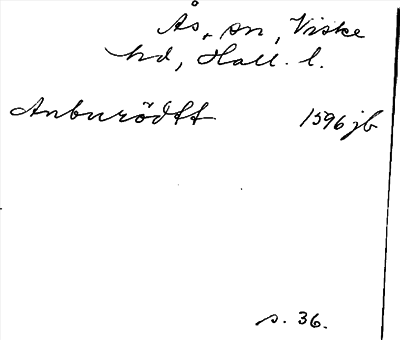 Ås, sn, Viske
hd, Hall. l.
Anburödtt 1596 jb
s. 36.